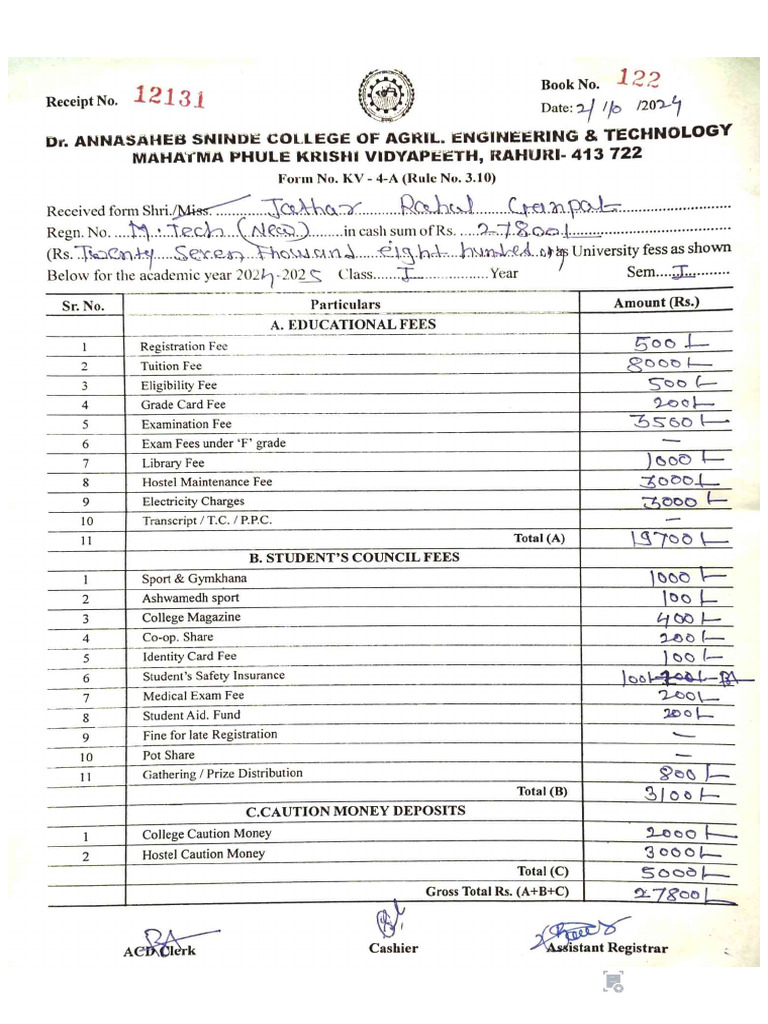 Book No. 122
Receipt No. 12131
Date: 2/10/2024
Dr. ANNASAHEB SNINDE COLLEGE OF AGRIL. ENGINEERING & TECHNOLOGY
MAHATMA PHULE KRISHI VIDYAPEETH, RAHURI- 413 722
Form No. KV - 4-A (Rule No. 3.10)
Received form Shri./Miss. Jathar Rahul Ganpat
Regn. No. M.Tech (New) in cash sum of Rs. 27800/-
(Rs. Twenty Seven Thousand eight hundred only University fess as shown
Below for the academic year 2024-2025 Class I Year Sem. I
Sr. No. Particulars Amount (Rs.)
A. EDUCATIONAL FEES
1 Registration Fee 500/-
2 Tuition Fee 8000/-
3 Eligibility Fee 500/-
4 Grade Card Fee 200/-
5 Examination Fee 3500/-
6 Exam Fees under 'F' grade —
7 Library Fee 1000/-
8 Hostel Maintenance Fee 3000/-
9 Electricity Charges 3000/-
10 Transcript / T.C. / P.P.C. —
11 Total (A) 19700/-
B. STUDENT'S COUNCIL FEES
1 Sport & Gymkhana 1000/-
2 Ashwamedh sport 100/-
3 College Magazine 400/-
4 Co-op. Share 200/-
5 Identity Card Fee 100/-
6 Student's Safety Insurance 100/- 200/-
7 Medical Exam Fee 200/-
8 Student Aid. Fund 200/-
9 Fine for late Registration —
10 Pot Share —
11 Gathering / Prize Distribution 800/-
Total (B) 3100/-
C.CAUTION MONEY DEPOSITS
1 College Caution Money 2000/-
2 Hostel Caution Money 3000/-
Total (C) 5000/-
Gross Total Rs. (A+B+C) 27800/-
ACD Clerk Cashier Assistant Registrar